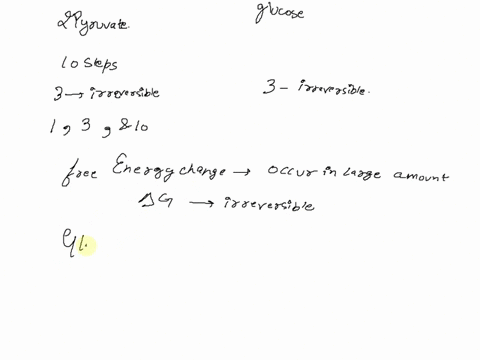 2Pyruvate. glucose
10 steps
3 → irreversible 3 - irreversible.
1, 3, & 10
free Energy change → occur in large amount
ΔG → irreversible
Gl